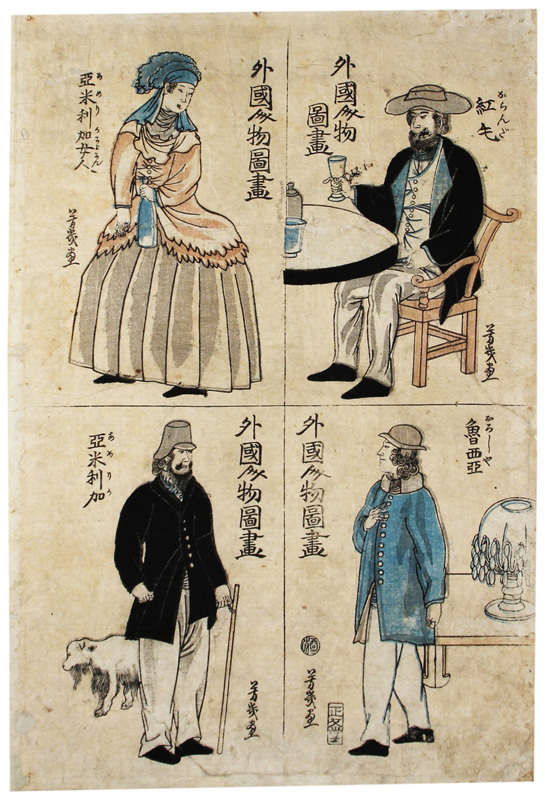 紅毛
おらんだ
外國人物
圖畫
芳幾画
外國人物圖畫
亞米利加女人
芳幾画
魯西亞
おろしや
外國人物圖畫
芳幾画
外國人物圖畫
亞米利加
あめりか
芳幾画